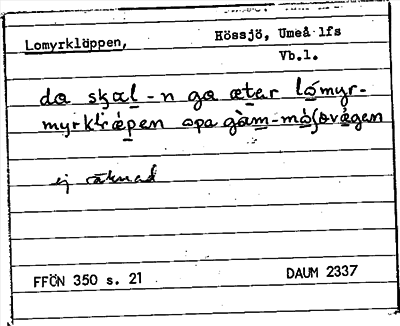 Lomyrkläppen,
Hössjö, Umeå lfs
Vb.l.
da skæl-n ga ætar lómyr-
myrkl̥ǽpen opa gàm-mo̱ʃovǽgen
ej räknad
FFÖN 350 s. 21
DAUM 2337